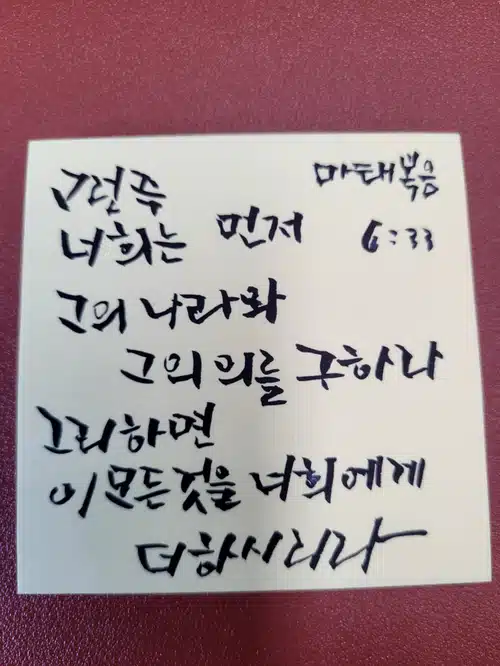 그런즉
너희는 먼저
마태복음
6:33
그의 나라와
그의 의를 구하라
그리하면
이 모든 것을 너희에게
더하시리라